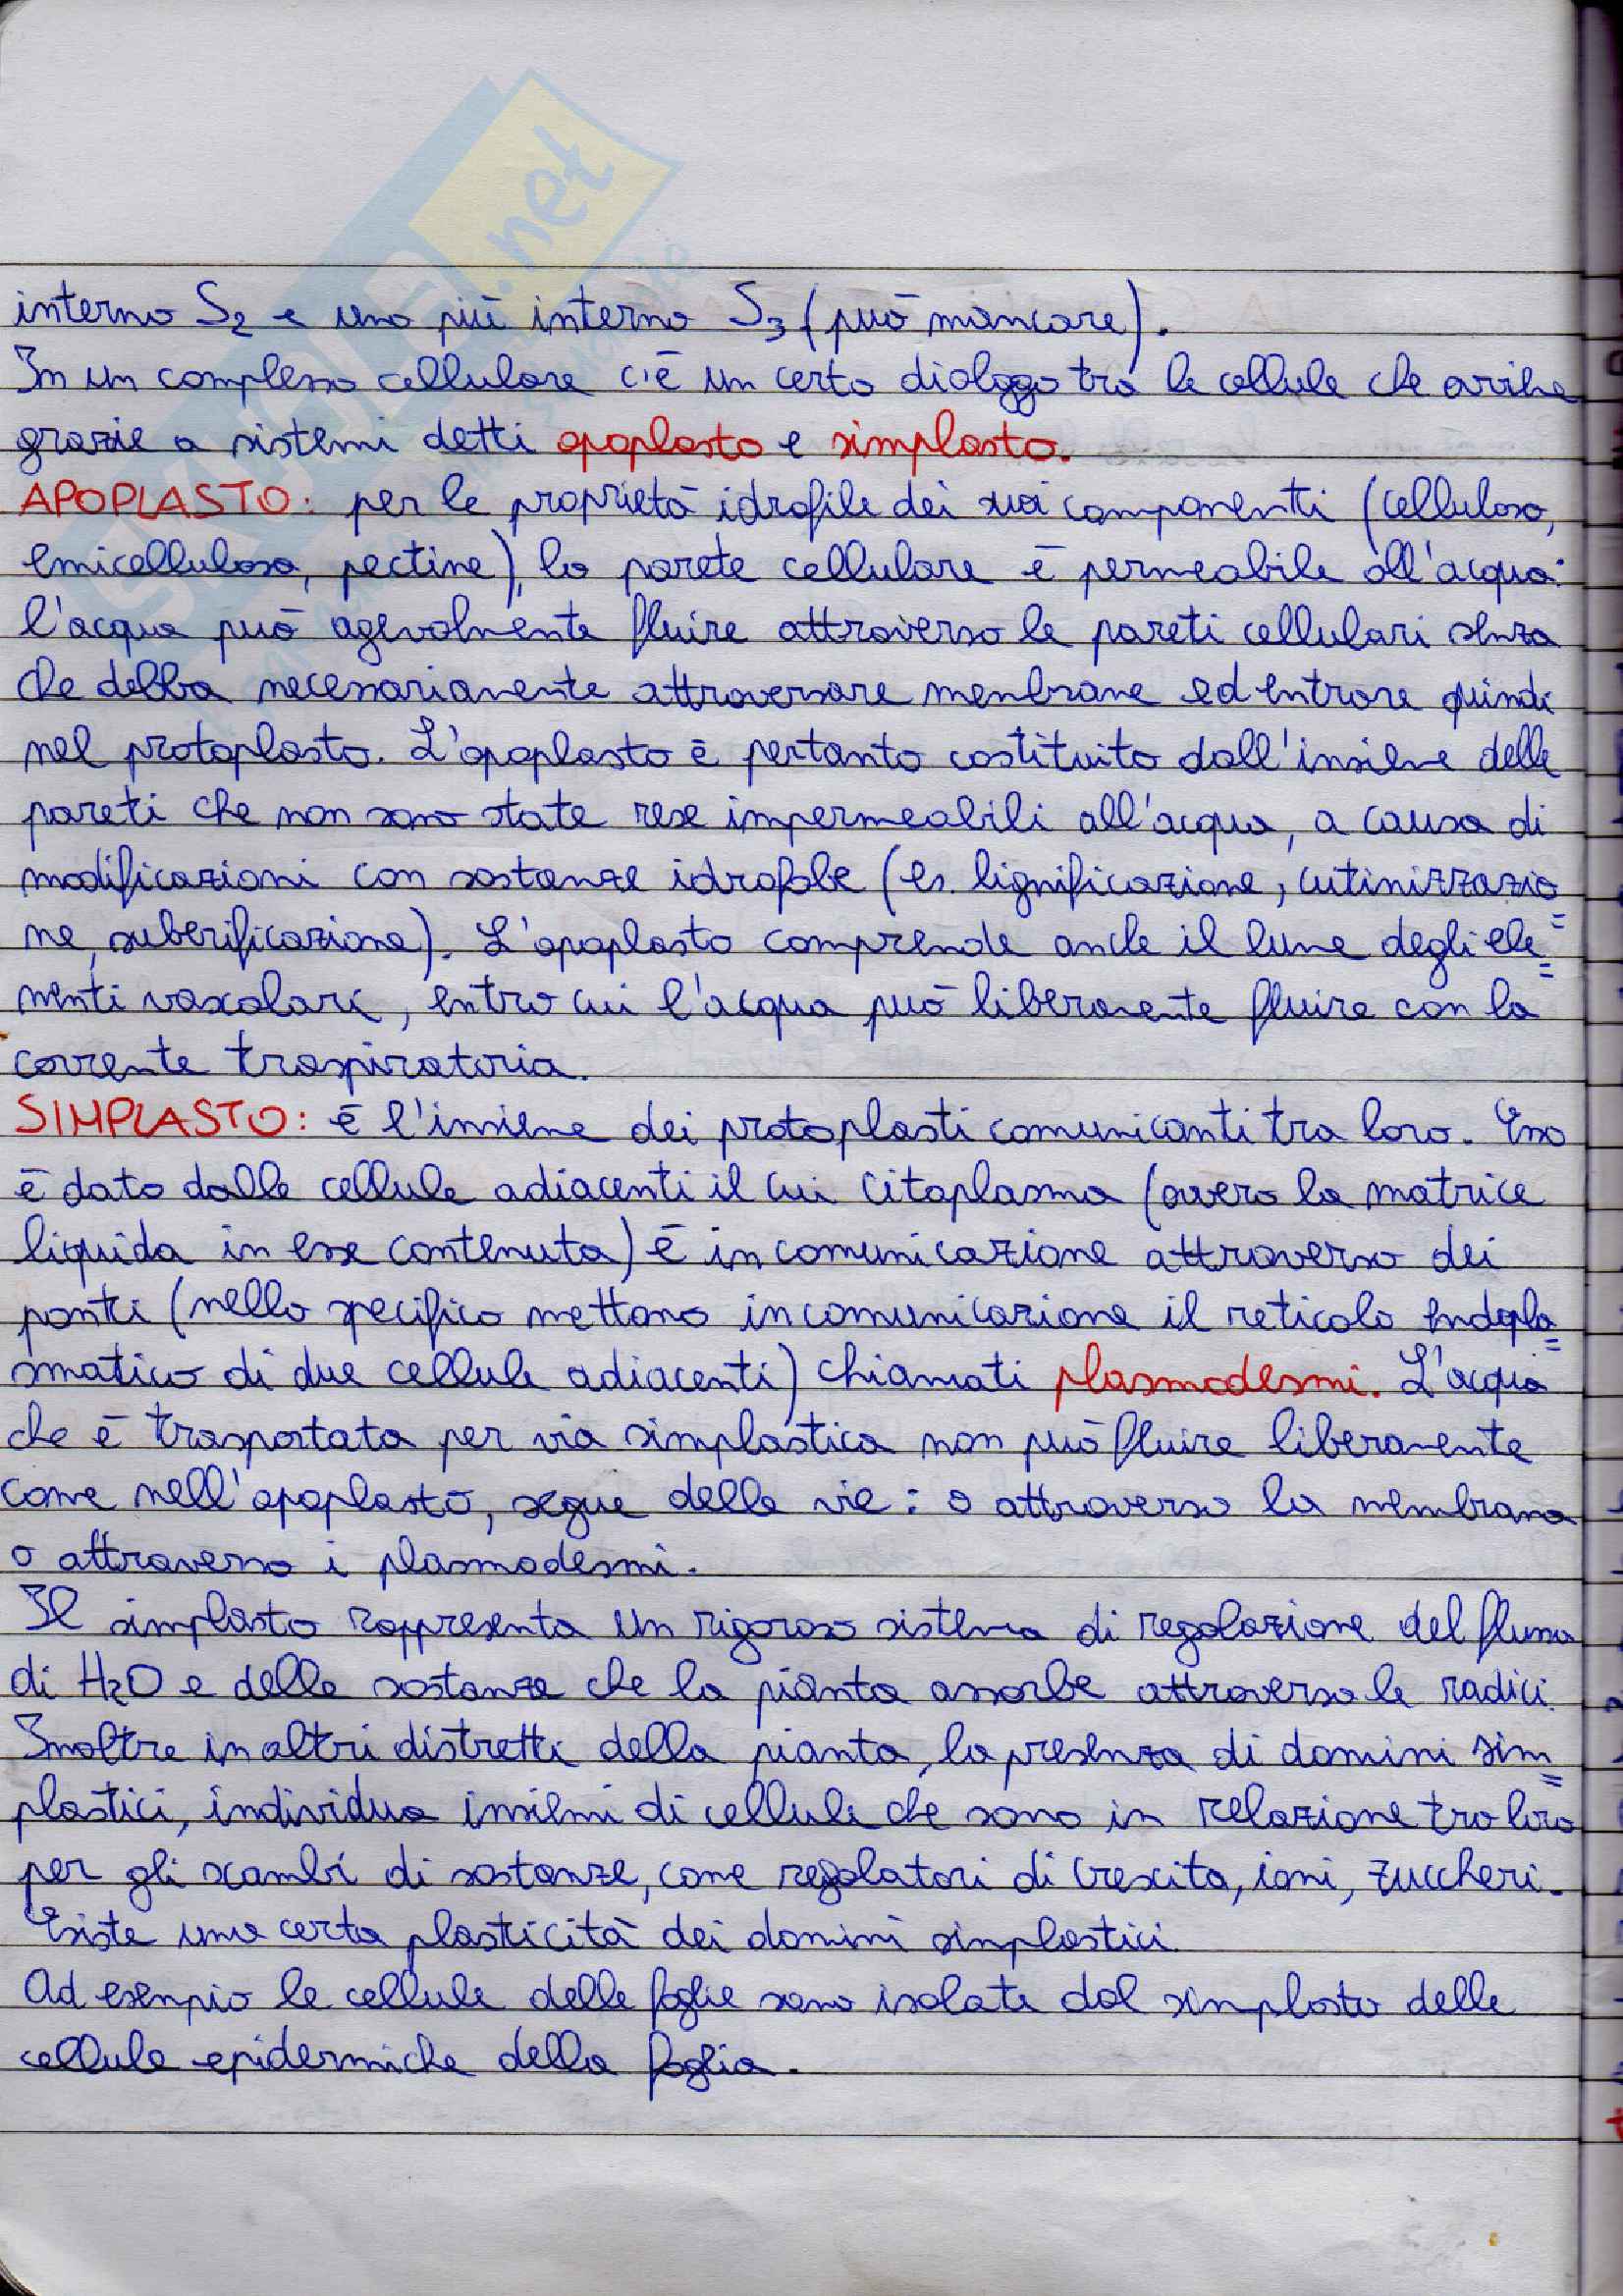 SKUOLA.net
interno S₂ e uno più interno S₃ (può mancare).
In un complesso cellulare c'è un certo dialogo tra le cellule che avviene
grazie a sistemi detti apoplasto e simplasto.
APOPLASTO: per le proprietà idrofile dei suoi componenti (cellulosa,
emicellulosa, pectine), la parete cellulare è permeabile all'acqua:
l'acqua può agevolmente fluire attraverso le pareti cellulari senza
che debba necessariamente attraversare membrane ed entrare quindi
nel protoplasto. L'apoplasto è pertanto costituito dall'insieme delle
pareti che non sono state rese impermeabili all'acqua, a causa di
modificazioni con sostanze idrofobe (es. lignificazione, cutinizzazio=
ne, suberificazione). L'apoplasto comprende anche il lume degli ele=
menti vascolari, entro cui l'acqua può liberamente fluire con la
corrente traspiratoria.
SIMPLASTO: è l'insieme dei protoplasti comunicanti tra loro. Esso
è dato dalle cellule adiacenti il cui citoplasma (ovvero la matrice
liquida in esse contenuta) è in comunicazione attraverso dei
ponti (nello specifico mettono in comunicazione il reticolo endopla=
smatico di due cellule adiacenti) chiamati plasmodesmi. L'acqua
che è trasportata per via simplastica non può fluire liberamente
come nell'apoplasto, segue delle vie: o attraverso la membrana
o attraverso i plasmodesmi.
Il simplasto rappresenta un rigoroso sistema di regolazione del flusso
di H₂O e delle sostanze che la pianta assorbe attraverso le radici.
Inoltre in altri distretti della pianta, la presenza di domini sim=
plastici, individua insiemi di cellule che sono in relazione tra loro
per gli scambi di sostanze, come regolatori di crescita, ioni, zuccheri.
Esiste una certa plasticità dei domini simplastici.
Ad esempio le cellule delle foglie sono isolate dal simplasto delle
cellule epidermiche della foglia.